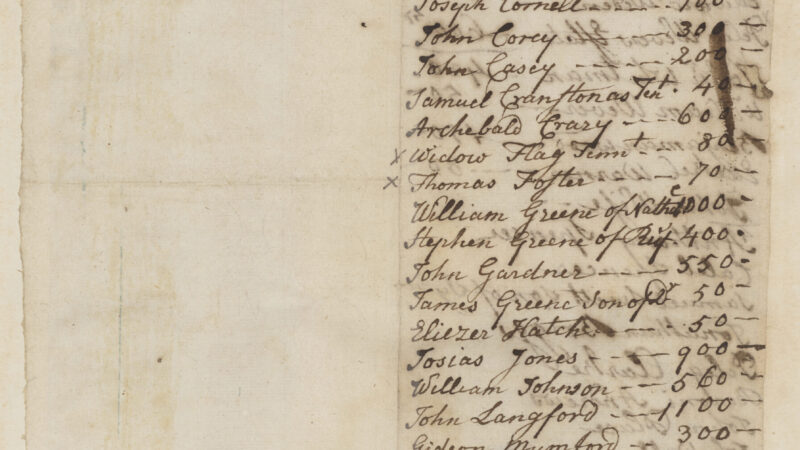 Joseph Cornell -- 100 -
John Corey --- 300 -
John Casey ---- 200 -
Samuel Cranston as Tent. 40 -
Archebald Crary --- 600 -
x Widow Flag Tennt - 80 -
x Thomas Foster --- 70 -
William Greene of Nathel 1000 -
Stephen Greene of 400 -
John Gardner ---- 550 -
James Greene Son of Do 50 -
Eliezer Hatch -- 50 -
Josias Jones ---- 900 -
William Johnson --- 560 -
John Langford --- 1100 -
Gideon Mumford -- 300 -